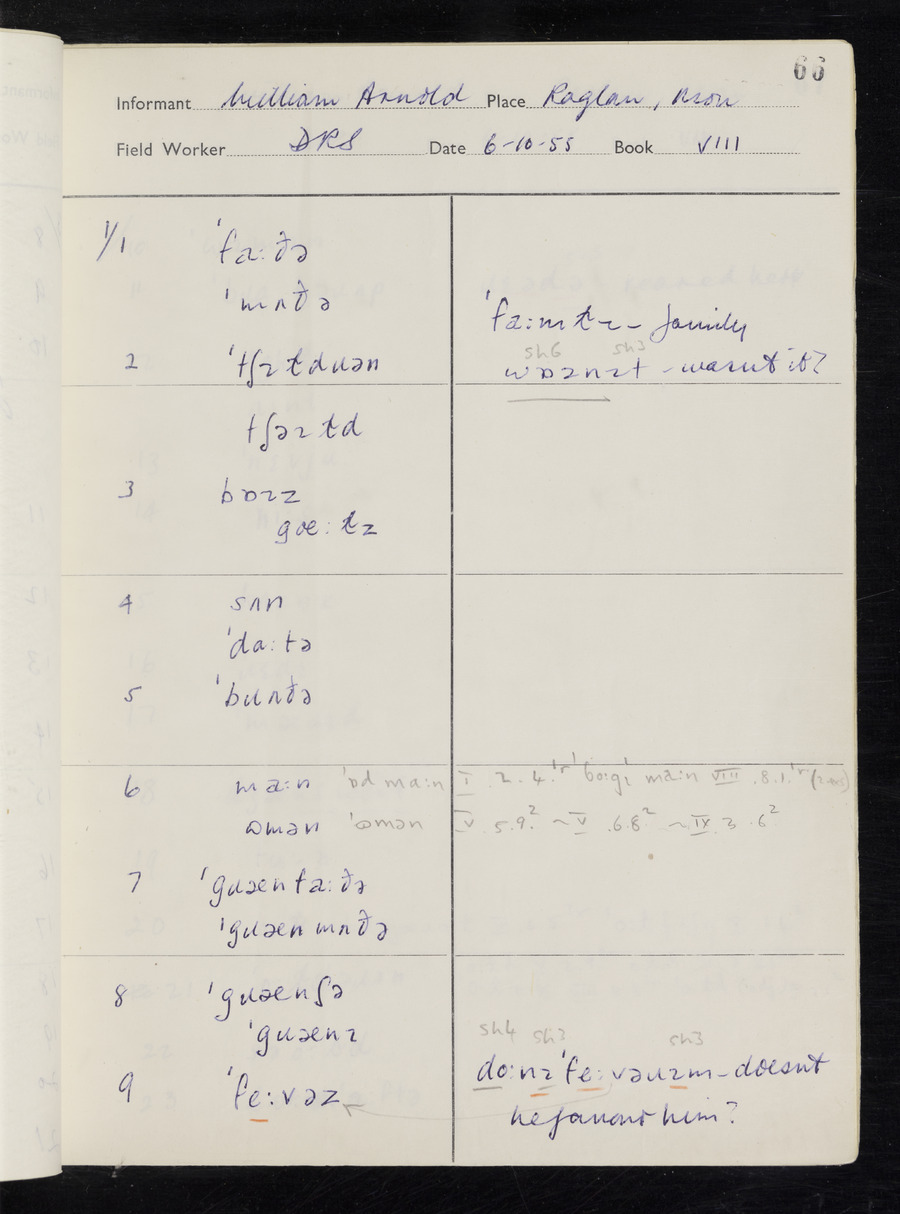 66
Informant William Arnold Place Raglan, Mon
Field Worker DRS Date 6-10-55 Book VIII
1/1 ˈfa:ðə
ˈmʌðə
ˈfa:mɫɪ - family
sh6 sh3
2 ˈtʃɪɫdɹən
wɒznɪt - wasnt it?
tʃəɪɫd
3 bɒɪz
gœ:ɫz
4 sʌn
ˈda:tə
5 ˈbɹʌðə
6 ma:n ˈɒd ma:n I .2.4. ma:n VIII .8.1.
ɷmən ˈɷmən V 5.9.² ~ V .6.8² ~ IX 3 .6²
7 ˈgɹæenfa:ðə
ˈgɹæenmʌðə
8 ˈgɹæenʃə
ˈgɹæenɪ
sh4 sh3 sh3
9 ˈfe:vəz
do:nɪˈfe:vəɹɪm - doesnt
he favour him?